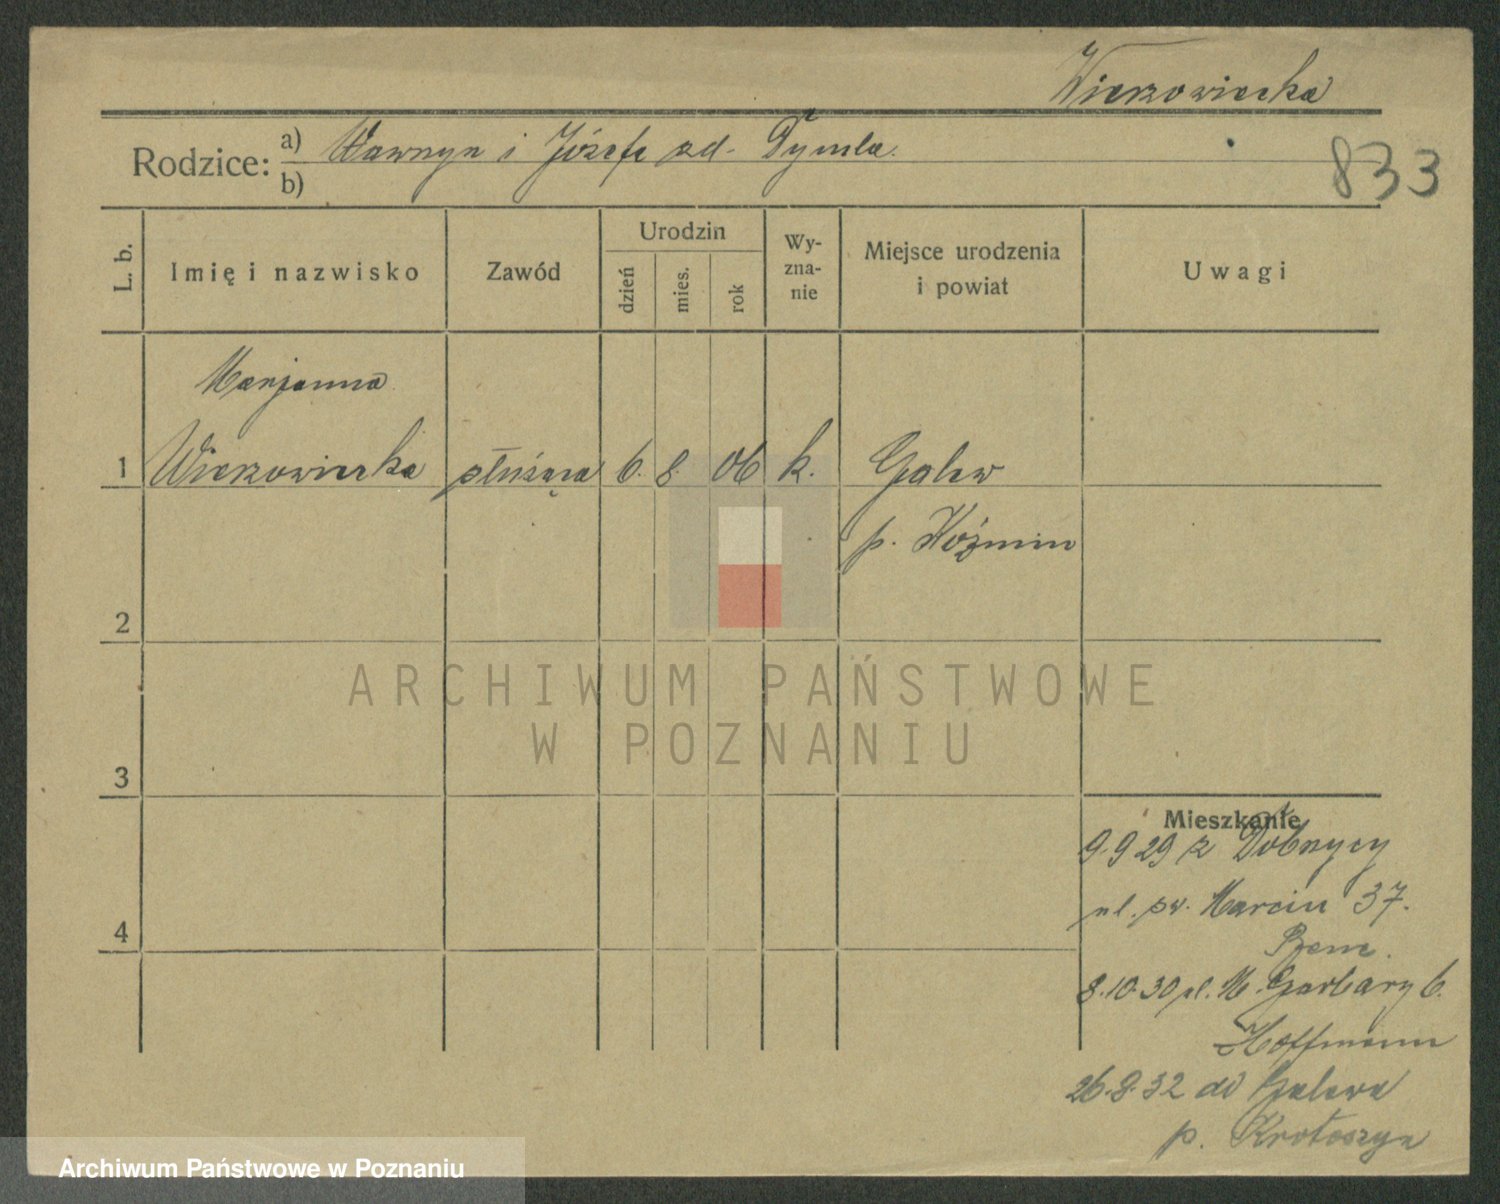 Wierzowiecka
Rodzice: a) Wawrzyn i Józefa zd. Tymla.
b)
833
L. b.
Imię i nazwisko
Zawód
Urodzin
dzień
mies.
rok
Wy-
zna-
nie
Miejsce urodzenia
i powiat
Uwagi
Marjanna
1 Wierzowiecka służąca 6. 8. 06 k. Galew
p. Koźmin
2
3
4
ARCHIWUM PAŃSTWOWE
W POZNANIU
Mieszkanie
9.9 29 z Dobrzycy
ul. św. Marcin 37.
8.10.30 ul. W. Garbary 6.
Hoffmann
26.8.32 do Galewa
p. Krotoszyn
Archiwum Państwowe w Poznaniu